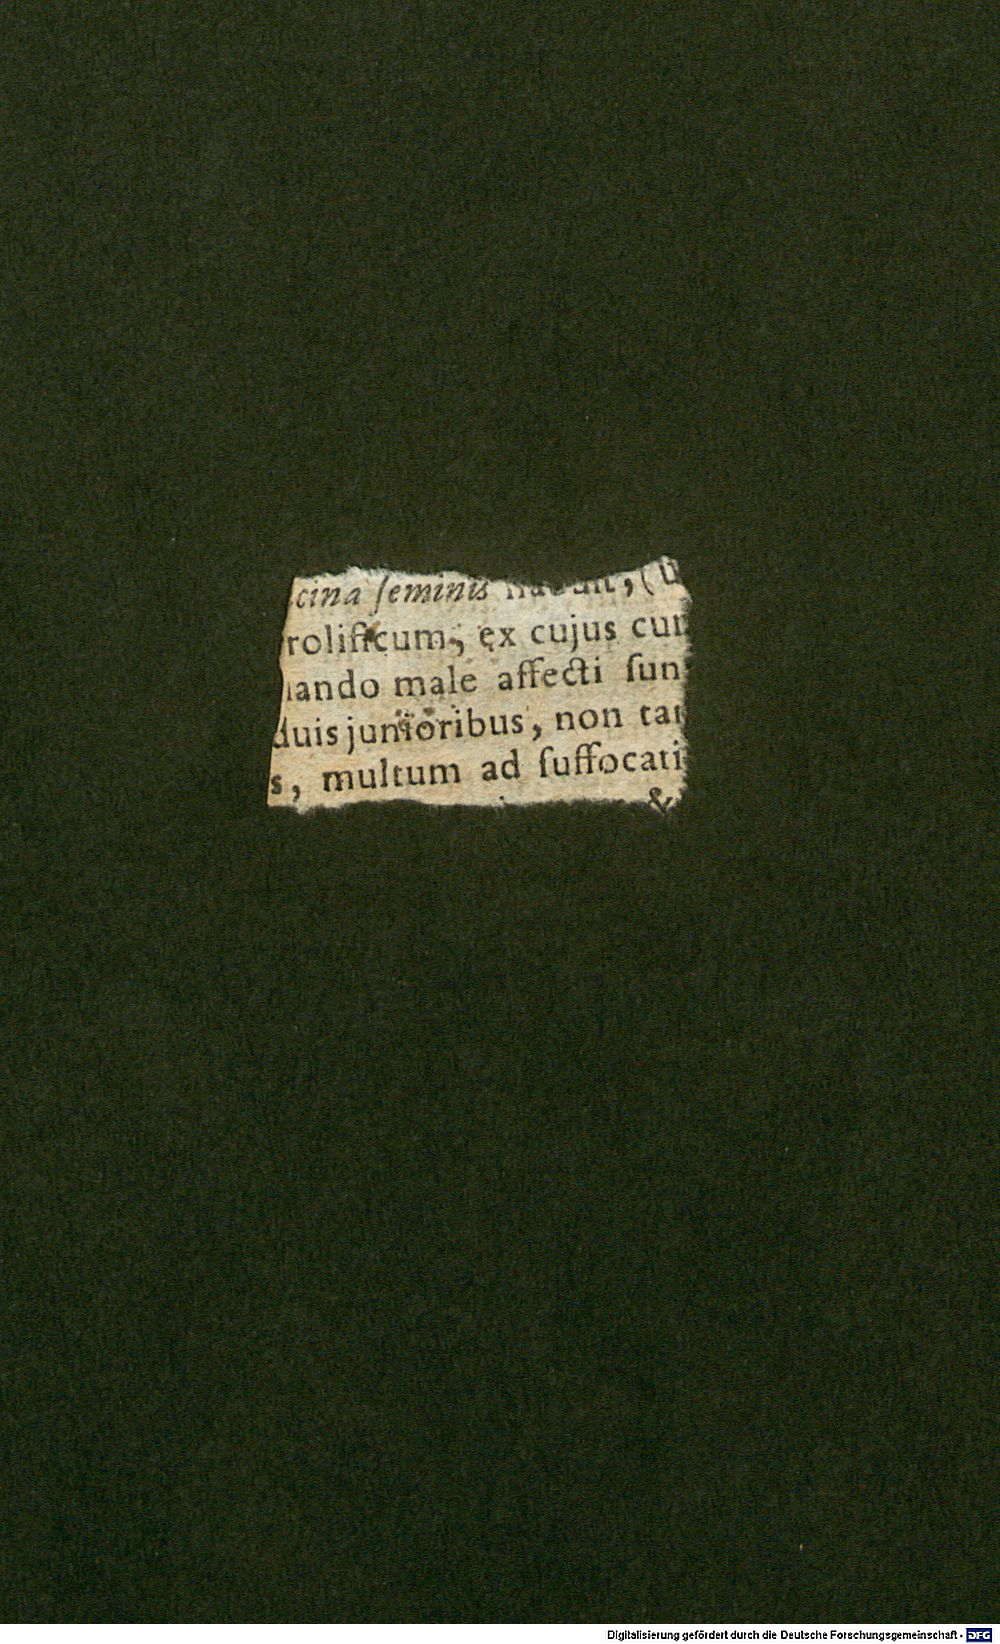 cina ſeminis
rolificum, ex cujus cur
ando male affecti ſun
duis junioribus, non tar
s, multum ad ſuffocati
&
Digitalisierung gefördert durch die Deutsche Forschungsgemeinschaft - DFG